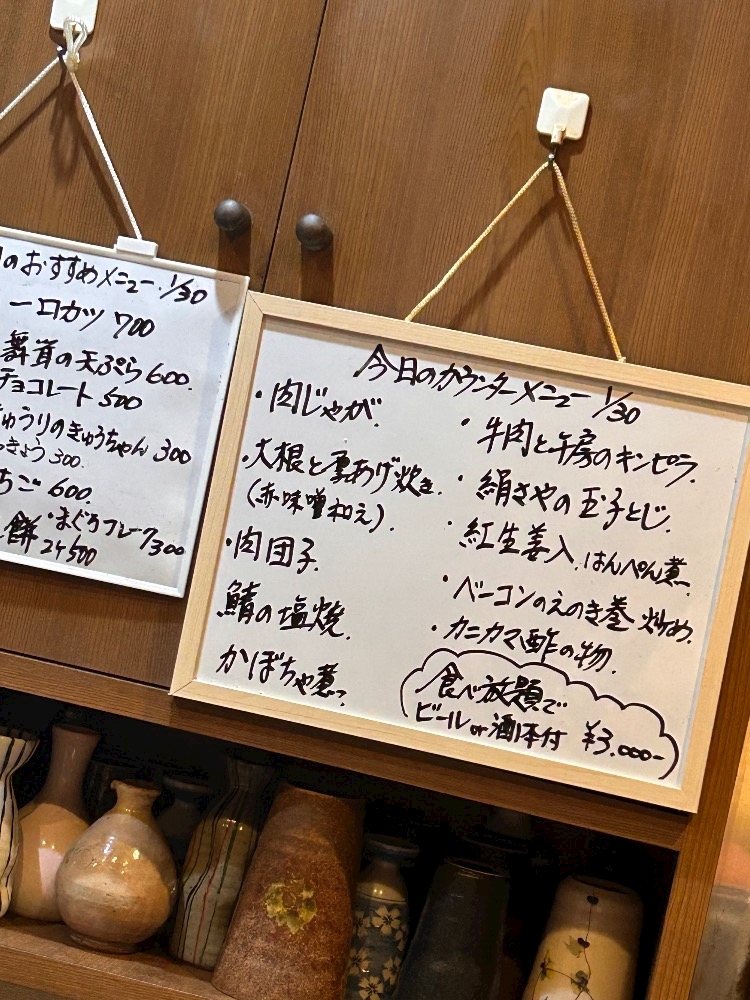 のおすすめメニュー 1/30
一口カツ 700
舞茸の天ぷら 600.
チョコレート 500
きゅうりのきゅうちゃん 300
っきょう 300.
ちご 600.
餅 ・まぐろフレーク 300
2ケ500
今日のカウンターメニュー 1/30
・肉じゃが.
・大根と厚あげ炊き.
(赤味噌和え).
・肉団子.
鯖の塩焼.
かぼちゃ煮っ.
・牛肉と牛房のキンピラ.
・絹さやの玉子とじ.
・紅生姜入.はんぺん煮
・ベーコンのえのき巻 炒め.
・カニカマ酢の物.
食べ放題で
ビール or 酒1本付 ¥3.000-